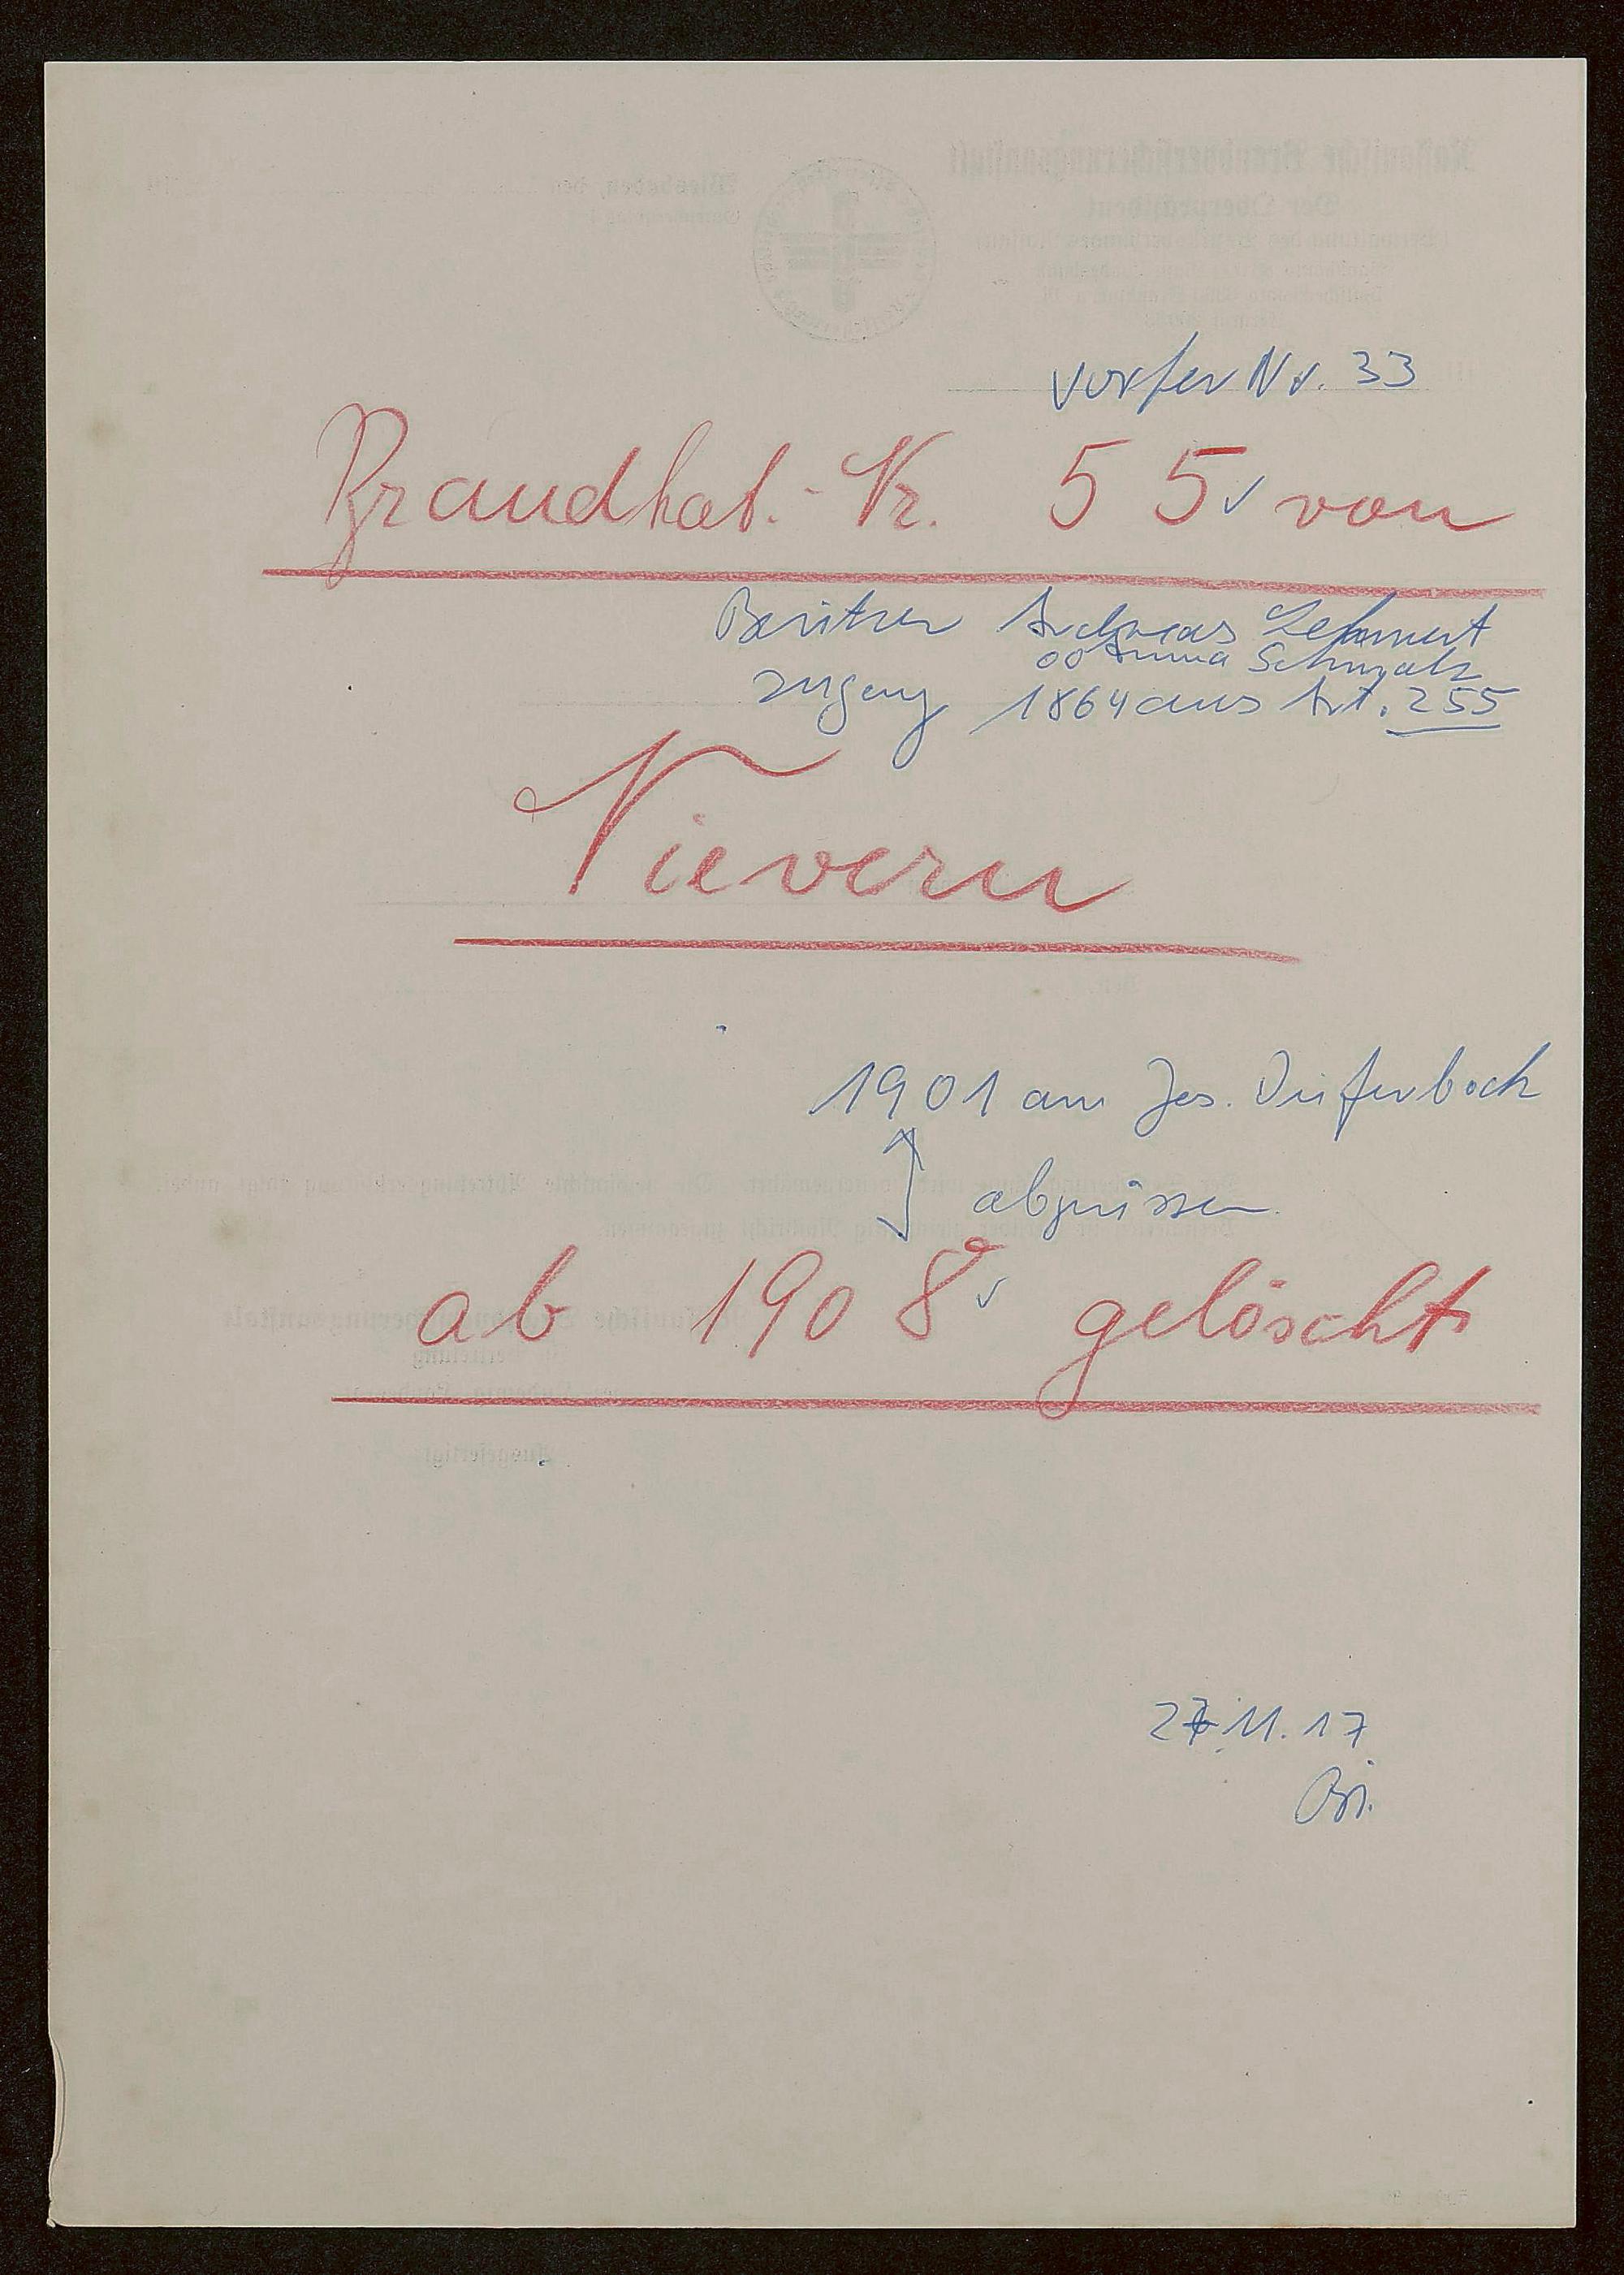 vorher Nr. 33
Brandkat.-Nr. 55 von
Besitzer Andreas Lehmert
oo Anna Schmalz
Zugang 1864 aus Art. 255
Nievern
1901 an Jos.
abgerissen
ab 1908 gelöscht
11.17